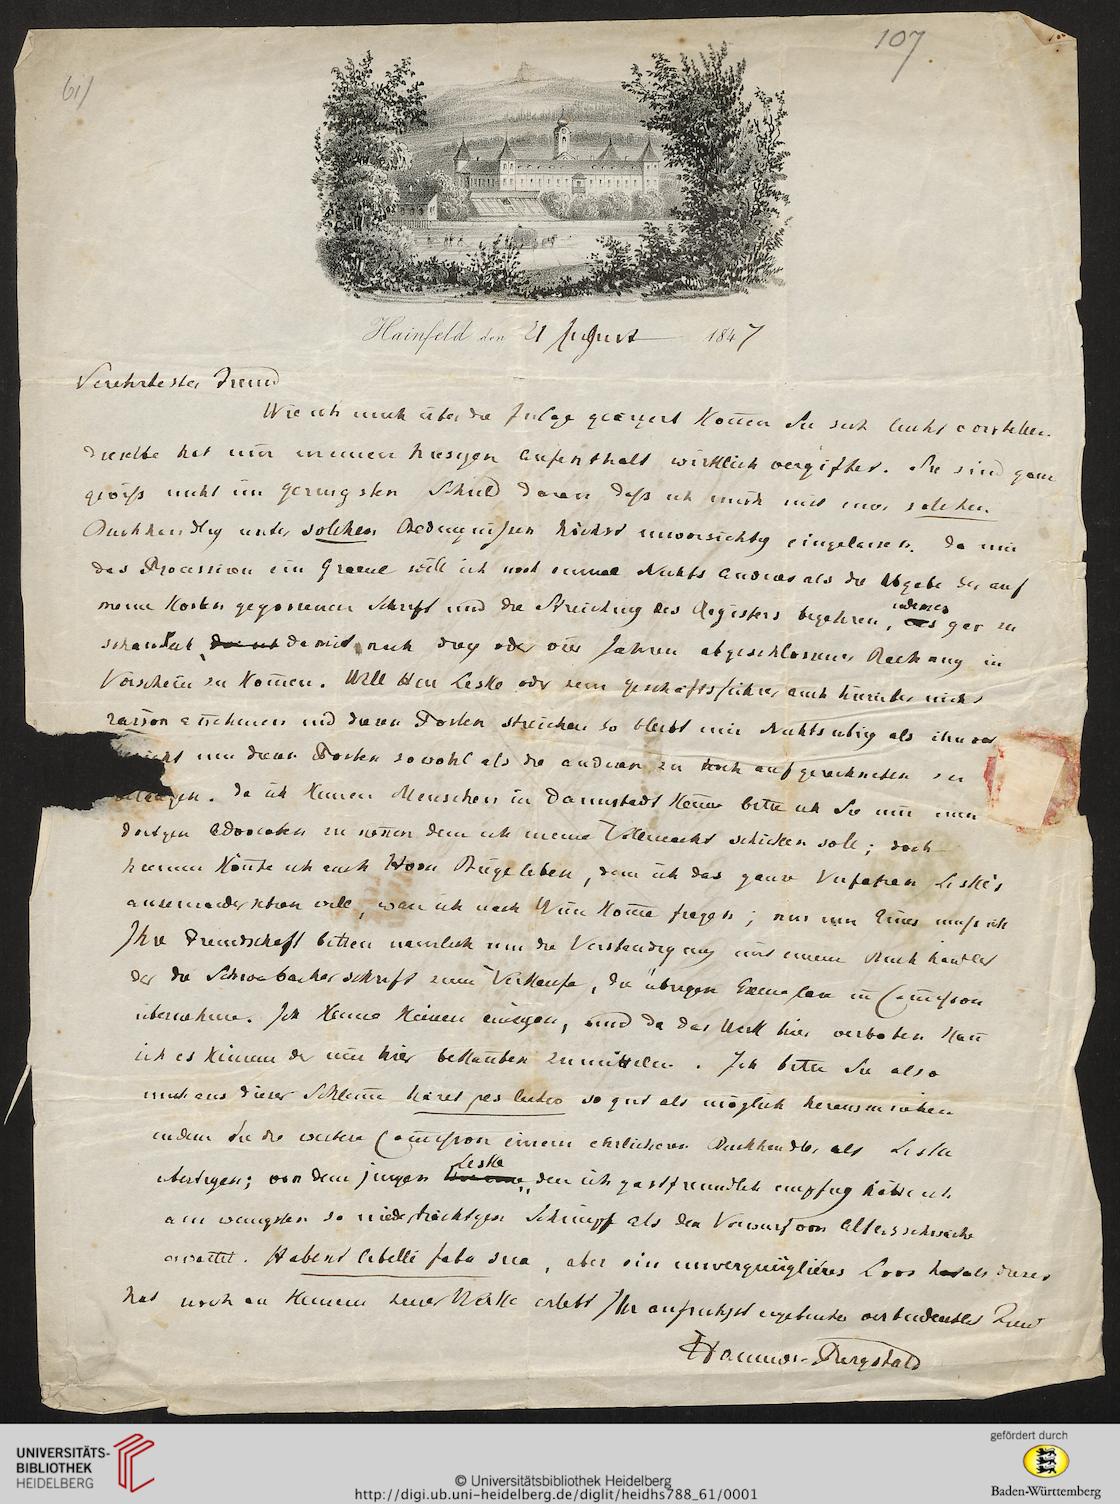 61)
107
Hainfeld den 21 August 1847
Verehrtester Freund
Wie ich mich über die Folge geärgert können Sie sich leicht vorstellen
dieselbe hat mir meinen hiesigen Aufenthalt wirklich vergiftet. Sie sind ganz
gewiss nicht im geringsten Schuld daran daß ich mich mit einer solchen
Buchhandlg unter solchen Bedingnißen höchst unvorsichtig eingelassen. Da mir
das Processiren ein Greuel will ich noch einmal Nichts anderes als die Abgabe der auf
meine Kosten gegossenen Schrift und die Streichung des Registers begehren, indem es gar zu
schändlich damit nach drey oder vier Jahren abgeschlossener Rechnung in
Vorschein zu kommen. Will Herr Leske oder sein Geschäftsführer auch hierüber nicht
raison annehmen und diesen Posten streichen so bleibt mir Nichts übrig als ihn vor
um diesen Posten sowohl als die anderen zu hoch aufgerechneten zu
belangen. Da ich keinen Menschen in Darmstadt kenne bitte ich Sie mir einen
dortigen Advocaten zu nennen dem ich meine Vollmacht schicken soll; doch
hierum könnte ich auch Hrn Biegeleben, dem ich das ganze Verfahren Leske's
auseinander setzen will, wenn ich nach Wien komme fragen; nur um Eines muß ich
Ihre Freundschaft bitten nämlich um die Verständigung mit einem Buchhändler
der die Schwabacherschrift zum Verkaufe, die übrigen Exemplare in Commission
übernehme. Ich kenne keinen einzigen, und da das Werk hier verboten kann
ich es keinem der mir hier bekannten zumitteln. Ich bitte Sie also
mich aus dieser Schlamme haeret pes luteo so gut als möglich herauszuziehen
indem Sie die weitere Commission einem ehrlicheren Buchhändler als Leske
übertragen; von dem jungen Leske, den ich gastfreundlich empfing hätte ich
am wenigsten so niederträchtigen Schimpf als den Vorwurf von Altersschwäche
erwartet. Habent libelli fata sua, aber ein unvergnüglicheres Loos als dieses
hat noch an keinem seiner Werke erlebt Ihr aufrichtigst ergebenster verbindenster Freund
Hammer-Purgstall
UNIVERSITÄTS-
BIBLIOTHEK
HEIDELBERG
© Universitätsbibliothek Heidelberg
http://digi.ub.uni-heidelberg.de/diglit/heidhs788_61/0001
gefördert durch
Baden-Württemberg